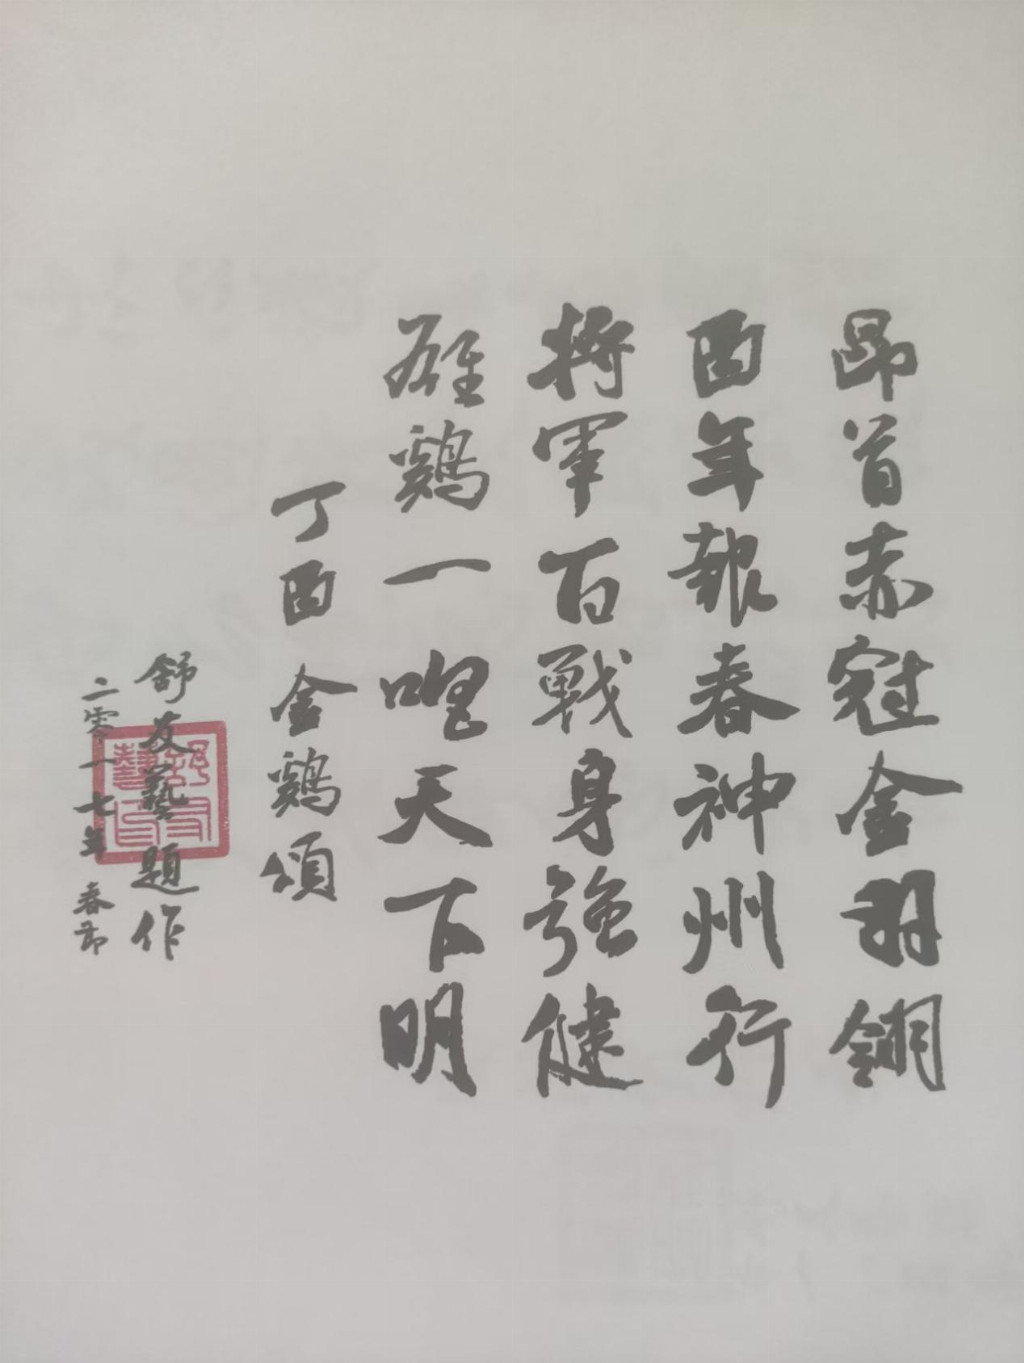 昂首赤冠金羽翎
酉年報春神州行
將軍百戰身強健
雄鷄一唱天下明
丁酉金鷄頌
舒友藝題作
二零一七年春节
舒友藝印